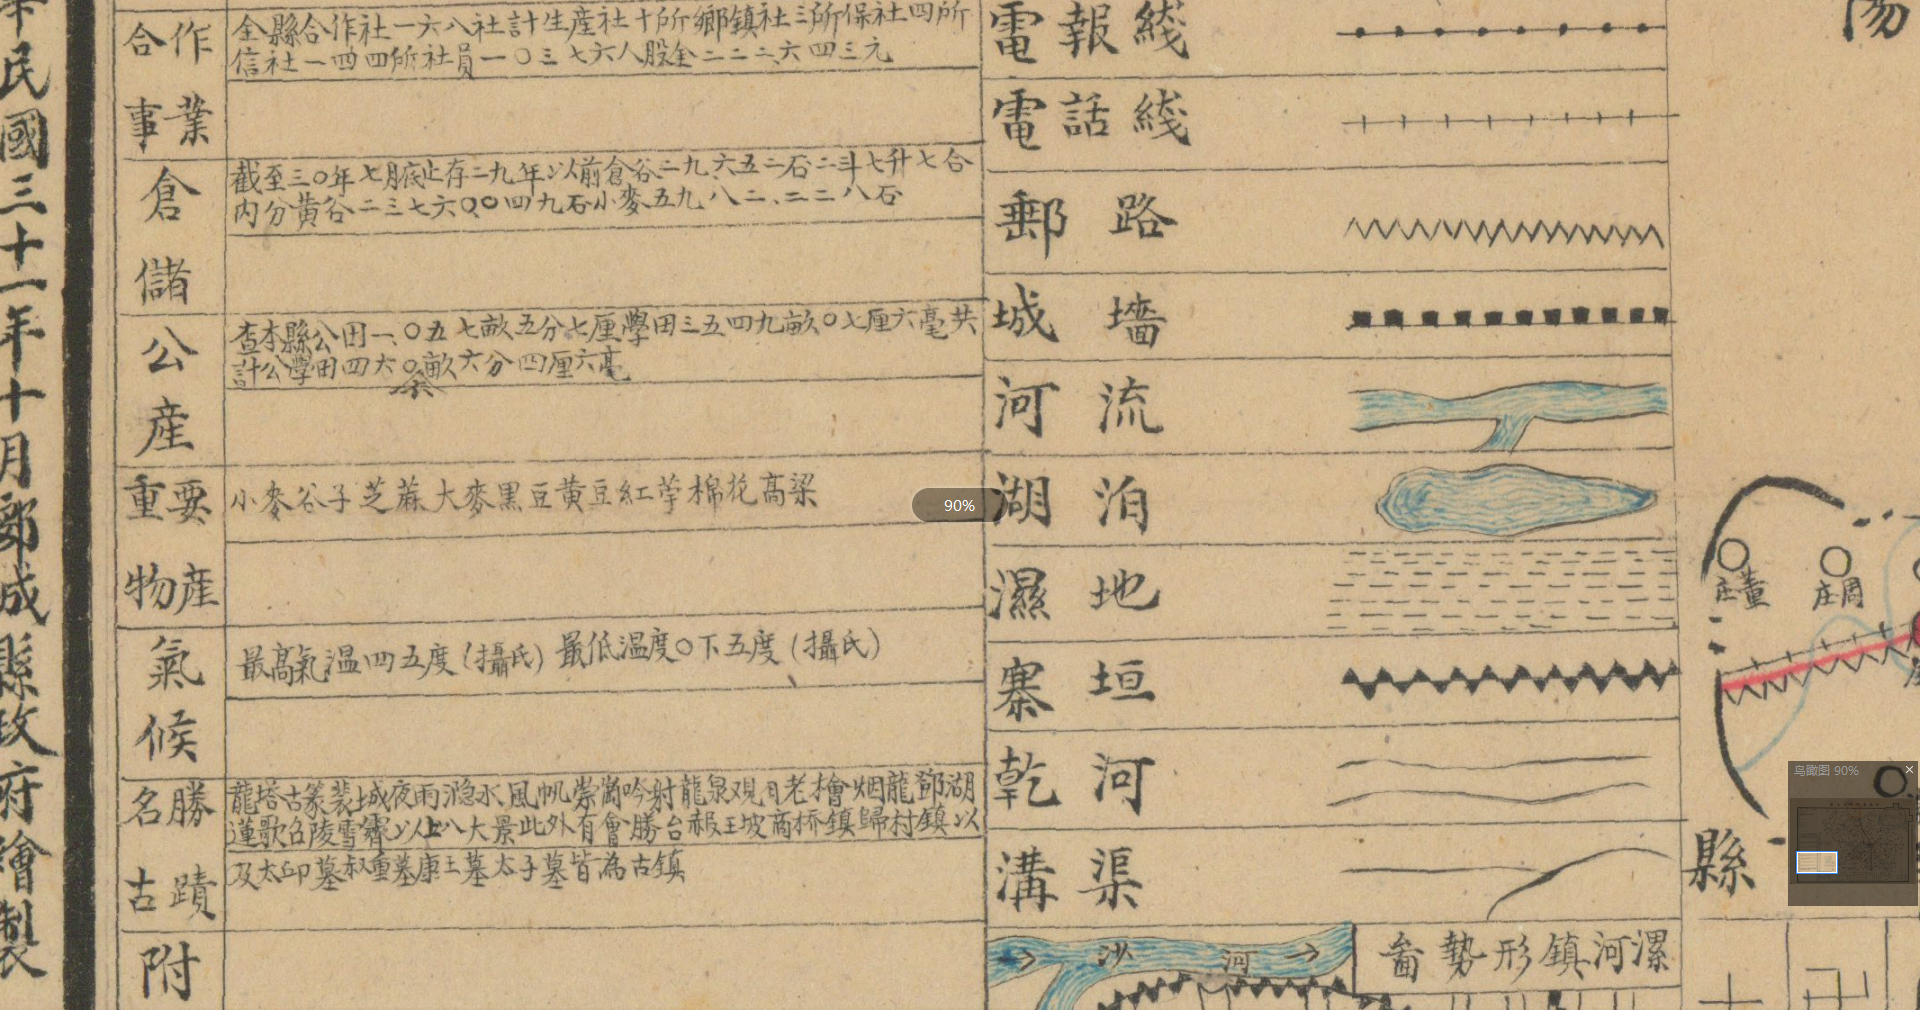 華民國三十一年十月郾城縣政府繪製
合作事業
全縣合作社一六八社計生産社十所鄉鎮社三所保社四所
信社一四四所社員一〇三七六人股金二二二六四三元
倉儲
截至三〇年七月底止存二九年以前倉谷二九、六五二石二斗七升七合
内分黄谷二三七六〇、〇四九石小麥五九八二、二二八石
公産
查本縣公田一、〇五七畝五分七厘學田三五四九畝〇七厘六毫共
計公學田四六〇畝六分四厘六毫
重要物産
小麥谷子芝蔴大麥黑豆黄豆紅芋棉花高梁
氣候
最高氣温四五度(攝氏)最低温度〇下五度(攝氏)
名勝古蹟
龍塔古篆裴城夜雨㶏水風帆崇崗吟射龍泉观月老檜烟龍鄧湖
蓮歌召陵雪霽以上八大景此外有會勝台赧王坡商桥鎮歸村鎮以
及太邱墓叔重墓康王墓太子墓皆為古鎮
附
電報綫
電話綫
郵路
城墻
河流
湖泊
濕地
寨垣
乾河
溝渠
沙河
漯河鎮形勢畣
董庄
周庄
縣
90%
鸟瞰图 90%